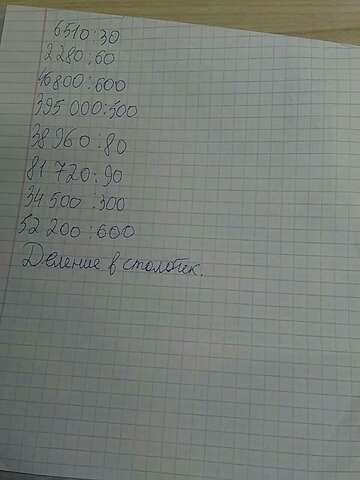 6510:30
2280:60
16800:600
395 000:500
38960:80
81 720:90
34 500:300
52 200:600
Деление в столбик.